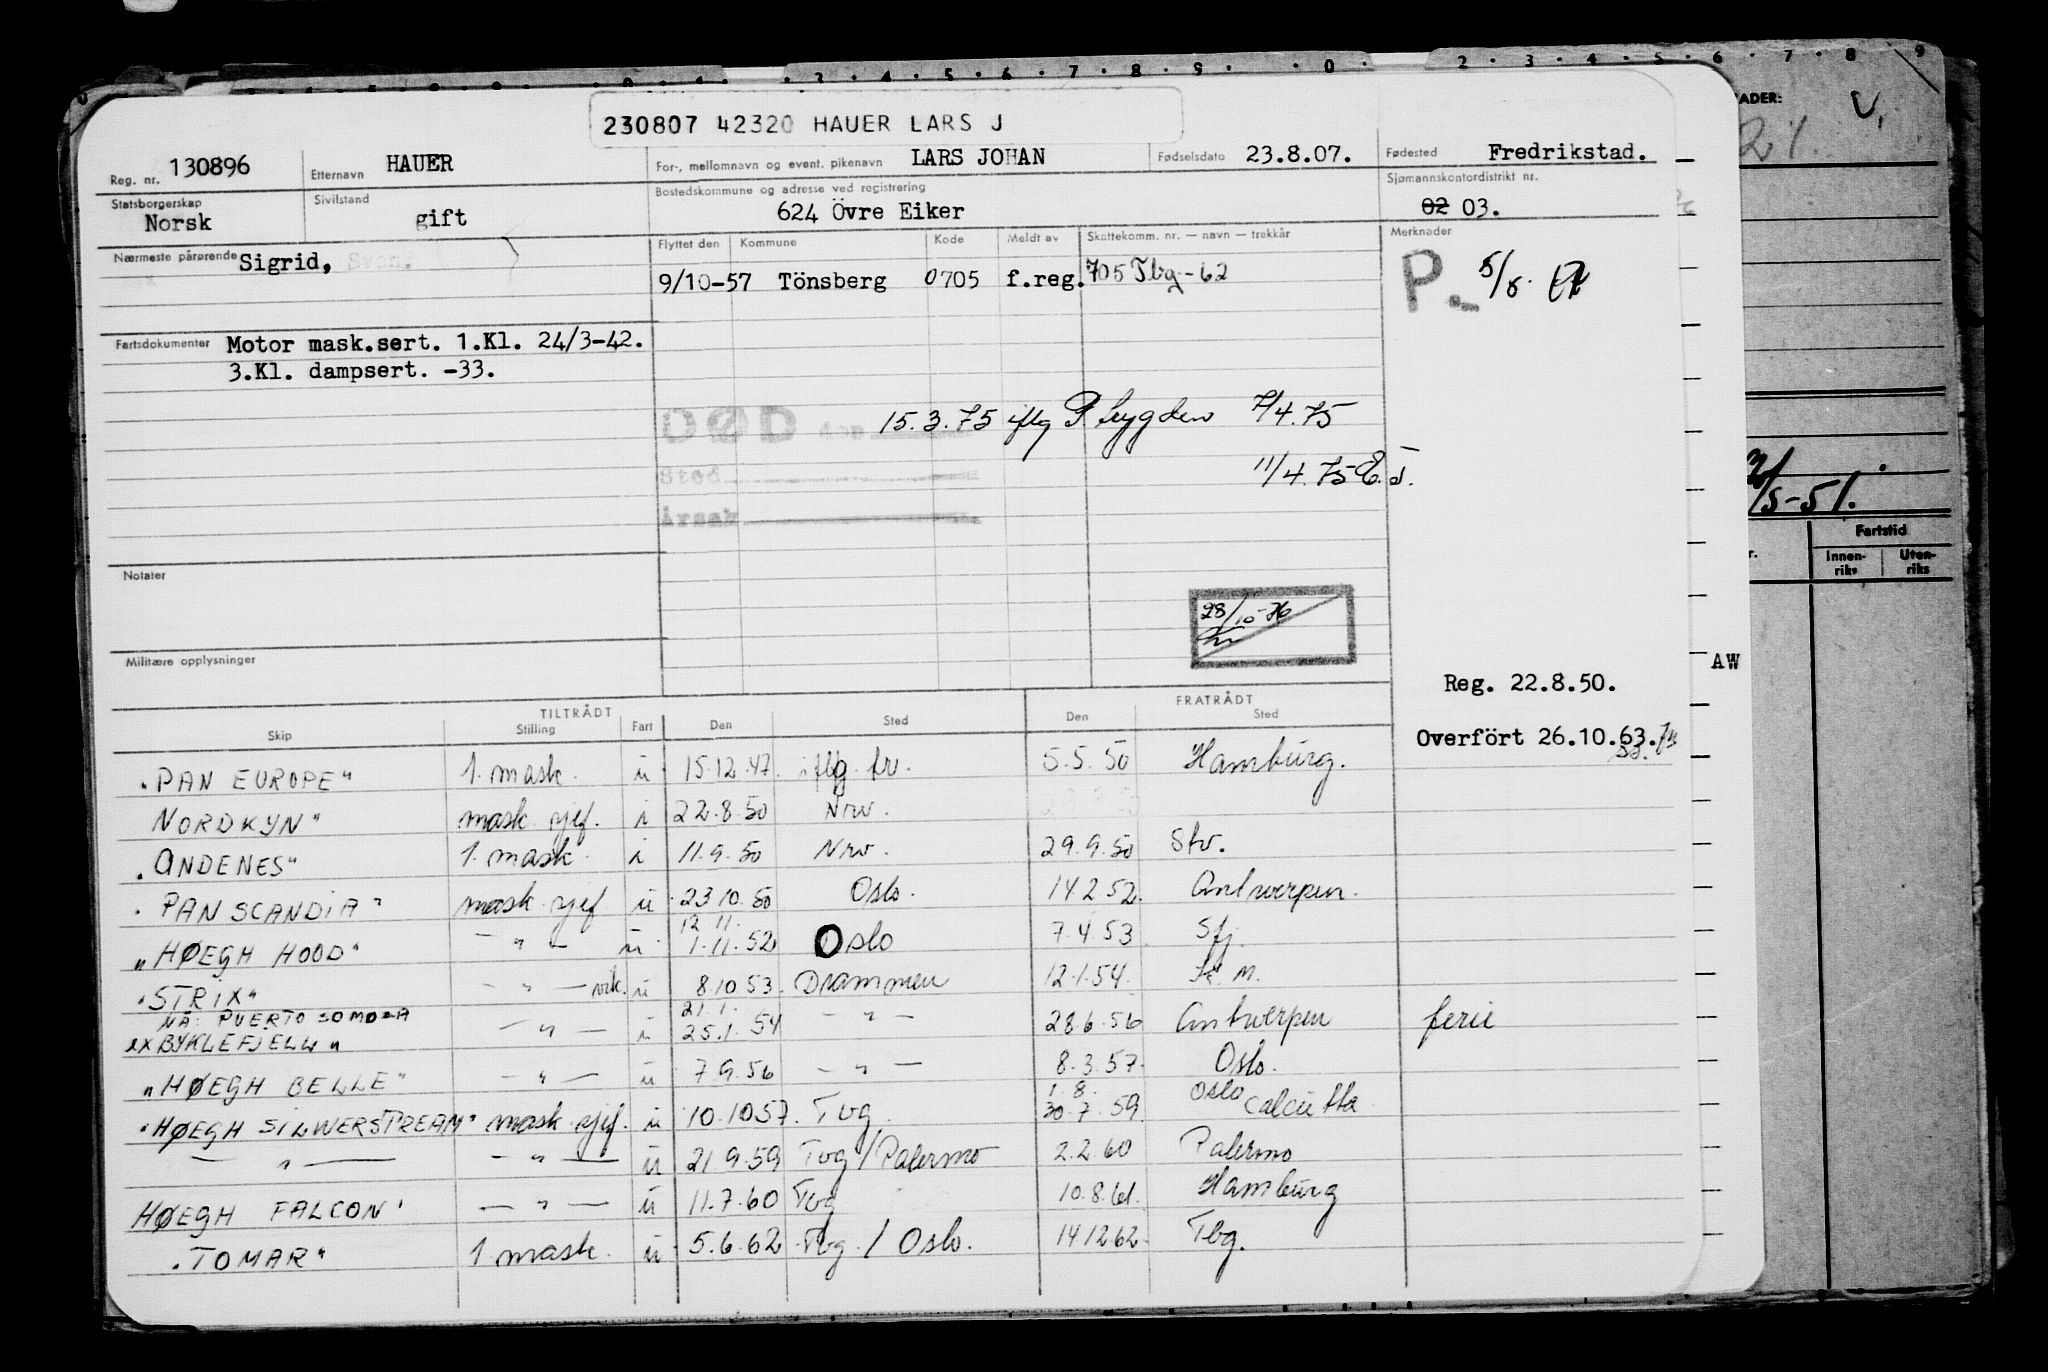 230807 42320 HAUER LARS J
Reg. nr. 130896 Etternavn HAUER For-, mellomnavn og event. pikenavn LARS JOHAN Fødselsdato 23.8.07. Fødested Fredrikstad.
Statsborgerskap Norsk Sivilstand gift Bostedskommune og adresse ved registrering 624 Övre Eiker Sjømannskontordistrikt nr. 02 03.
Nærmeste pårørende Sigrid, Flyttet den Kommune Kode Meldt av Skattekomm. nr. — navn — trekkår Merknader
9/10-57 Tönsberg 0705 f.reg. 705 Tbg-62 P. 5/8.
Fartsdokumenter Motor mask.sert. 1.Kl. 24/3-42.
3.Kl. dampsert. -33.
DØD den 15.3.75 iflg P. trygden 7/4.75
Sted 11/4.75
Årsak
Notater
28/10-76
Militære opplysninger
Reg. 22.8.50.
Overfört 26.10.63.
TILTRÅDT FRATRÅDT
Skip Stilling Fart Den Sted Den Sted
"PAN EUROPE" 1. mask. u 15.12.47. iflg. fr. 5.5.50 Hamburg.
NORDKYN" mask sjef. i 22.8.50 Nrv.
"ANDENES" 1. mask. i 11.9.50 Nrv. 29.9.50 Stv.
"PAN SCANDiA" mask sjef u 23.10.50 Oslo. 14.2.52. Antwerpen.
12.11.
"HØEGH HOOD" — " — u 1.11.52 Oslo 7.4.53 Sfj.
"STRIX" — " — vik. u 8.10.53. Drammen 12.1.54. Kr. N.
21.1.
NÅ: PUERTO SOMOZA
ex BYKLEFJELL" — " — u 25.1.54 — " — 28.6.56 Antwerpen ferie
"HØEGH BELLE" — " — u 7.9.56 — " — 8.3.57. Oslo.
1.8. Oslo
"HØEGH SILWERSTREAM" mask sjef. u 10.10.57. Tbg. 30.7.59. Calcutta
— " — — " — u 21.9.59 Tbg / Palermo 2.2.60 Palermo
HØEGH FALCON" — " — u 11.7.60 Tbg 10.8.61. Hamburg
"TOMAR" 1. mask. u 5.6.62 Tbg. / Oslo. 14.12.62. Tbg.
ADER:
21.
/5-51.
Fartstid
Innen-
riks
Uten-
riks
AW